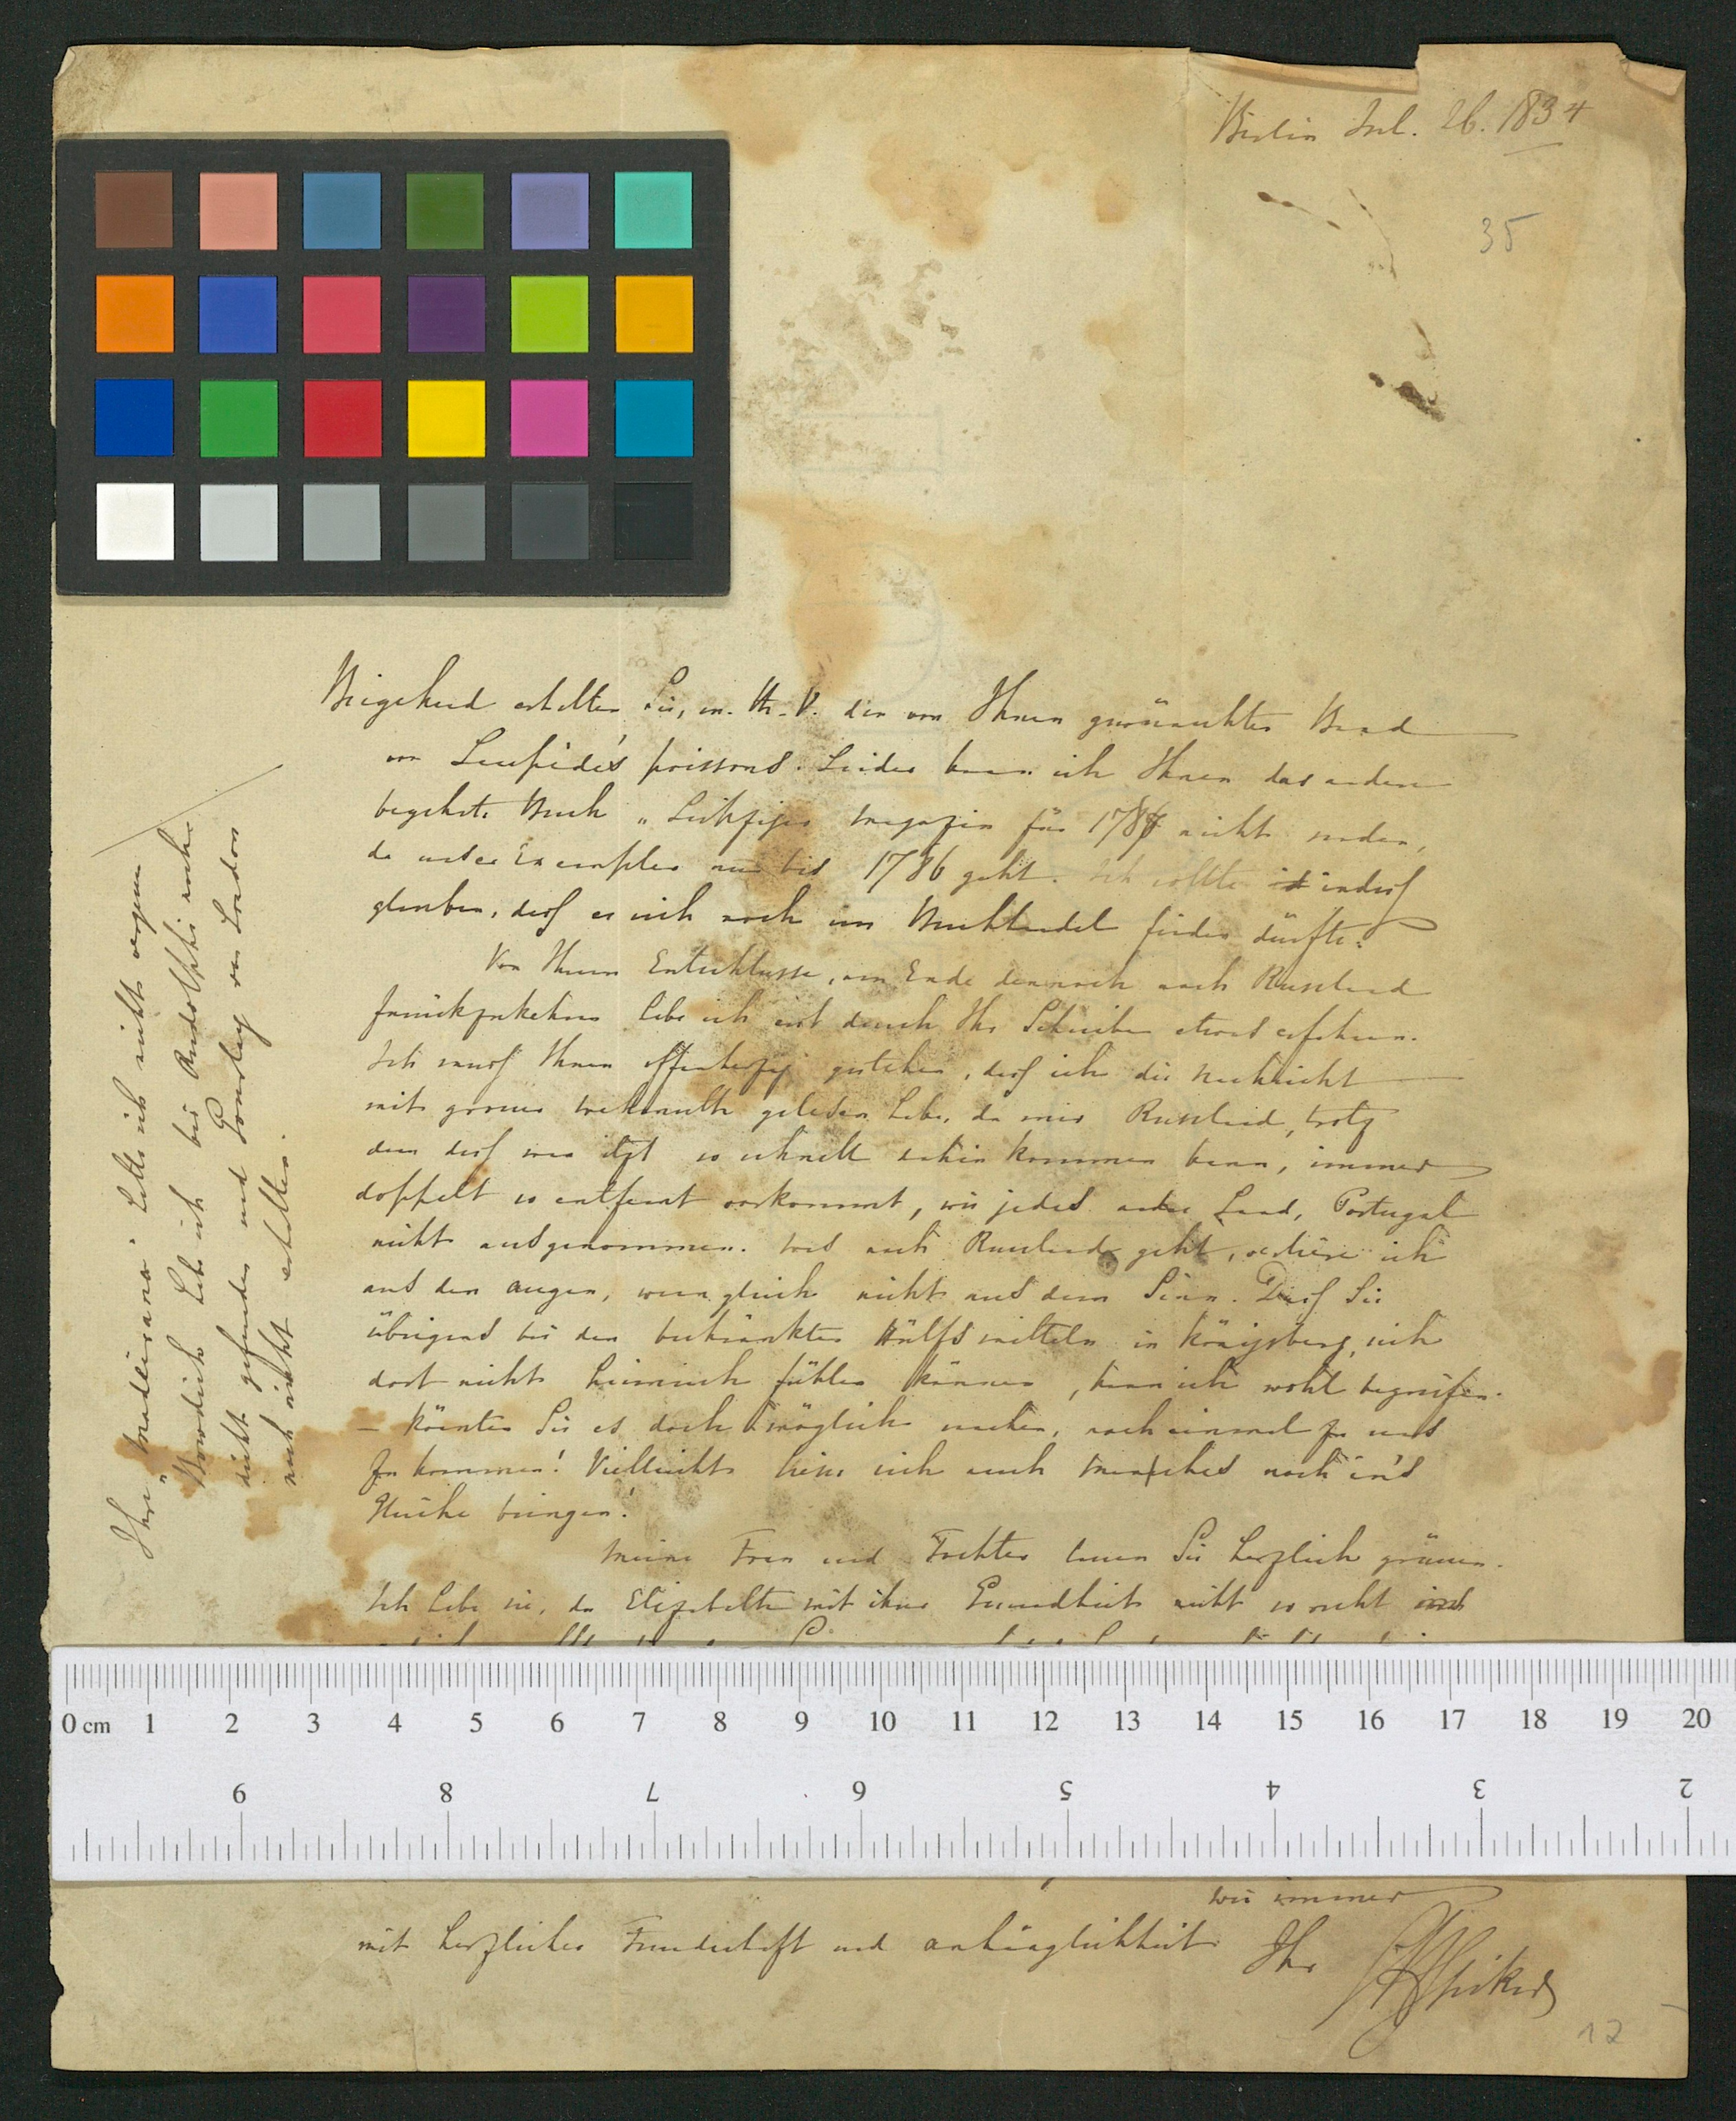 Berlin Jul. 26. 1834
35
Beigehend erhalten Sie, m. Th. V. den von Ihnen gewünschten Band
von Lacépède's poissons. Leider kann ich Ihnen das andere
begehrte Buch „Leipziger Magazin für 1787 nicht senden,
da unser Exemplar nur bis 1786 geht. Ich sollte indess
glauben, dass es sich noch im Buchhandel finden dürfte.
Von Ihrem Entschlusse, am Ende dennoch nach Russland
zurückzukehren habe ich erst durch Ihr Schreiben etwas erfahren.
Ich muss Ihnen offenherzig gestehen, dass ich die Nachricht
mit grosser Wehmuth gelesen habe, da mir Russland, trotz
dem dass man itzt so schnell dahin kommen kann, immer
doppelt so entfernt vorkommt, wie jedes andre Land, Portugal
nicht ausgenommen. Was nach Russland geht, verliere ich
aus den Augen, wenn gleich nicht aus dem Sinn. Dass Sie
übrigens bei den beschränkten Hülfsmitteln in Königsberg, sich
dort nicht heimisch fühlen können, kann ich wohl begreifen.
– Könnten Sie es doch möglich machen, noch einmal zu uns
zu kommen! Vielleicht liesse sich auch manches noch in's
Gleiche bringen!
Meine Frau und Tochter lassen Sie herzlich grüssen.
Ich habe sie, da Elizabeth mit ihrer Gesundheit nicht so recht
wie immer
mit herzlicher Freundschaft und Anhänglichkeit Ihr Spiker
12
Ihre „Medicinano" hatte ich nicht vergessen
Bowdich habe ich bei Rudolphi's Sache
nicht gefunden und von London
auch nicht erhalten.
0 cm 1 2 3 4 5 6 7 8 9 10 11 12 13 14 15 16 17 18 19 20
9 8 7 6 5 4 3 2